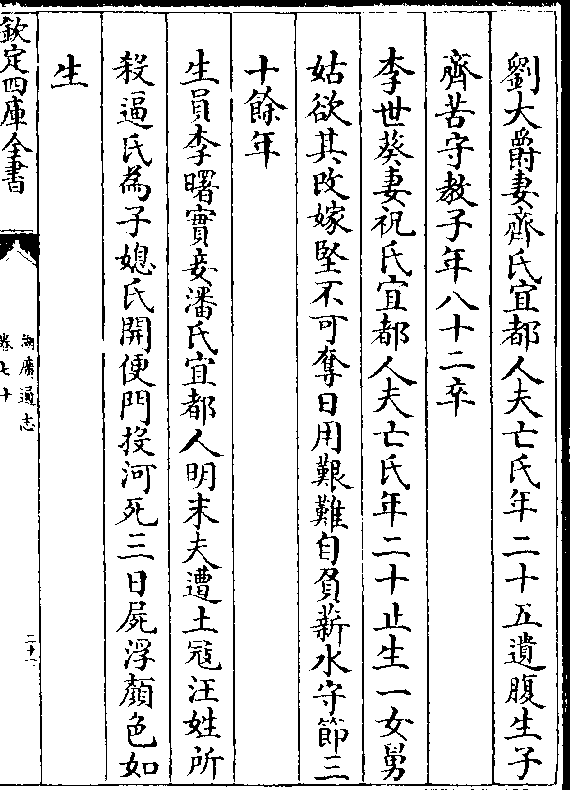 劉大爵妻齊氏宜都人夫亡氏年二十五遺腹生子
齊苦守教子年八十二卒
李世葵妻祝氏宜都人夫亡氏年二十止生一女舅
姑欲其改嫁堅不可奪日用艱難自負薪水守節三
十餘年
生員李曙實妾潘氏宜都人明末夫遭土寇汪姓所
殺逼氏為子媳氏開便門投河死三日屍浮顏色如
生
欽定四庫全書
湖廣通志
卷七十
二十一